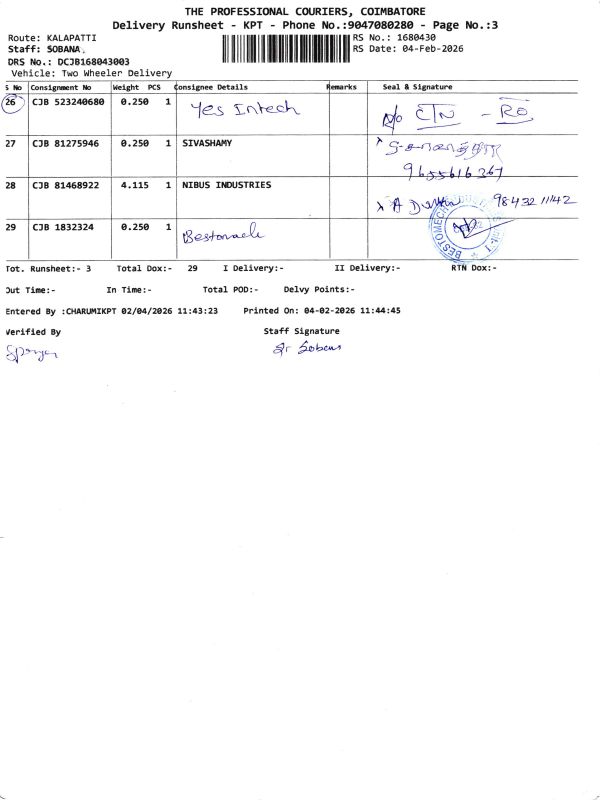 THE PROFESSIONAL COURIERS, COIMBATORE
Delivery Runsheet - KPT - Phone No.:9047080280 - Page No.:3
Route: KALAPATTI
RS No.: 1680430
Staff: SOBANA.
RS Date: 04-Feb-2026
DRS No.: DCJB168043003
Vehicle: Two Wheeler Delivery
S No Consignment No Weight PCS Consignee Details Remarks Seal & Signature
26 CJB 523240680 0.250 1 Yes Intech N/o CTN - RO
27 CJB 81275946 0.250 1 SIVASHAMY
9655616367
28 CJB 81468922 4.115 1 NIBUS INDUSTRIES
9843211142
29 CJB 1832324 0.250 1
Tot. Runsheet:- 3 Total Dox:- 29 I Delivery:- II Delivery:- RTN Dox:-
Out Time:- In Time:- Total POD:- Delvy Points:-
Entered By :CHARUMIKPT 02/04/2026 11:43:23 Printed On: 04-02-2026 11:44:45
Verified By Staff Signature